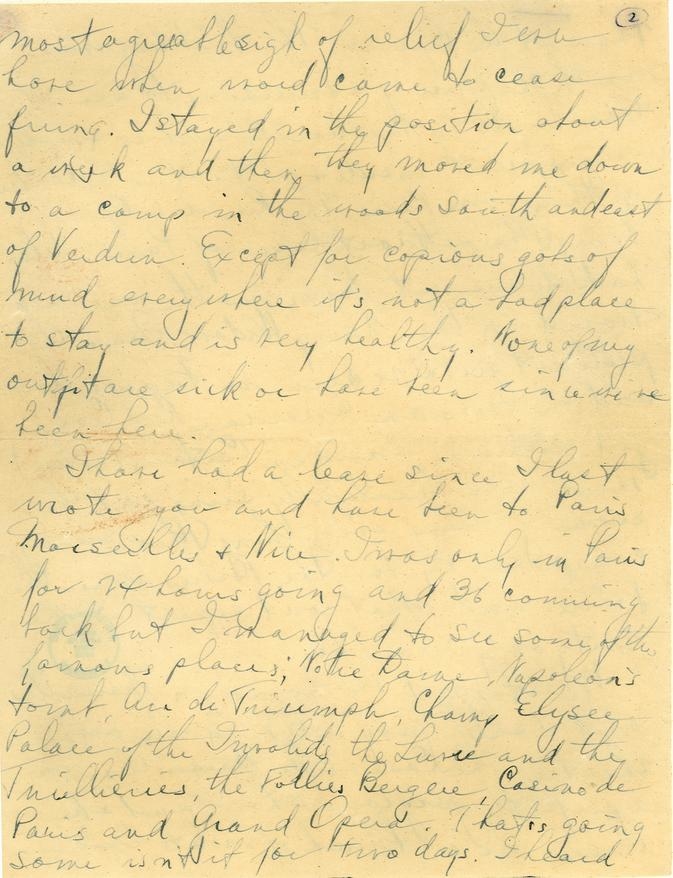 2
most agreeable sigh of relief I ever
gave when word came to cease
firing. I stayed in the position about
a week and then they moved me down
to a camp in the woods south and east
of Verdun. Except for copious gobs of
mud everywhere it's not a bad place
to stay and is very healthy. None of my
outfit are sick or have been since we've
been here.
I have had a leave since I last
wrote you and have been to Paris
Marseilles & Nice. I was only in Paris
for 24 hours going and 36 comming
back but I managed to see some of the
famous places; Notre Dame, Napoleon's
tomb, Arc di Triumph, Champ Elysee
Palace of the Invalids the Luvre and the
Tuillieries, the Follies Bergere, Casino de
Paris and Grand Opera. That's going
some isn't it for two days. I heard